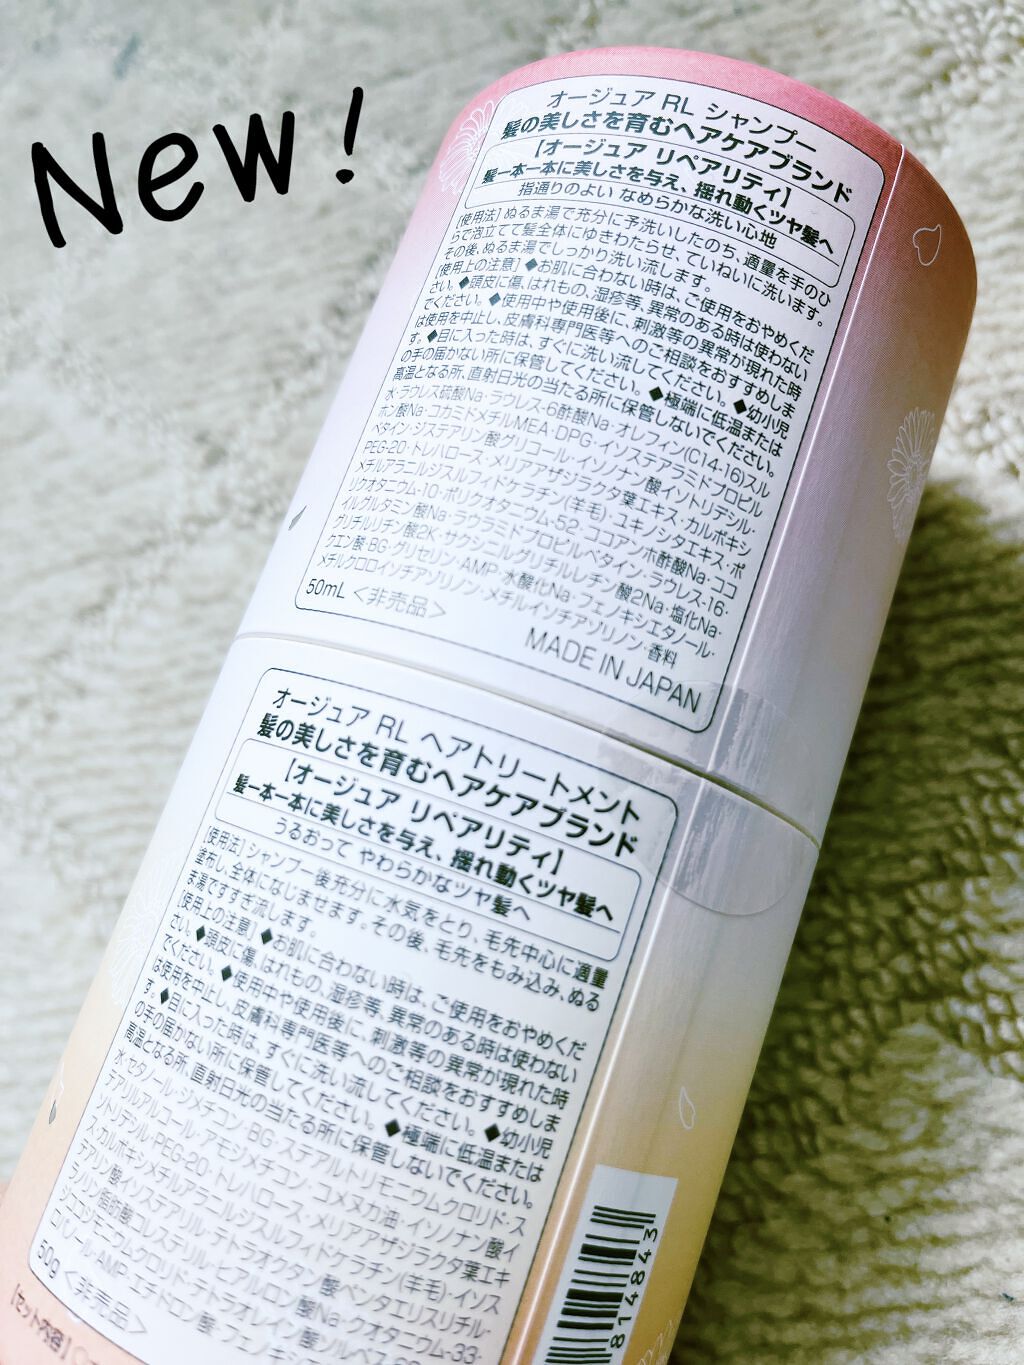 New!
オージュア RL シャンプー
髪の美しさを育むヘアケアブランド
【オージュア リペアリティ】
髪一本一本に美しさを与え、揺れ動くツヤ髪へ
指通りのよい なめらかな洗い心地
[使用法] ぬるま湯で充分に予洗いしたのち、適量を手のひ
らで泡立てて髪全体にゆきわたらせ、ていねいに洗います。
その後、ぬるま湯でしっかり洗い流します。
[使用上の注意] ◆お肌に合わない時は、ご使用をおやめくだ
さい。◆頭皮に傷、はれもの、湿疹等、異常のある時は使わない
でください。◆使用中や使用後に、刺激等の異常が現れた時
は使用を中止し、皮膚科専門医等へのご相談をおすすめしま
す。◆目に入った時は、すぐに洗い流してください。◆幼小児
の手の届かない所に保管してください。◆極端に低温または
高温となる所、直射日光の当たる所に保管しないでください。
水・ラウレス硫酸Na・ラウレス-6酢酸Na・オレフィン(C14-16)スル
ホン酸Na・コカミドメチルMEA・DPG・イソステアラミドプロピル
ベタイン・ジステアリン酸グリコール・イソノナン酸イソトリデシル・
PEG-20・トレハロース・メリアアザジラクタ葉エキス・カルボキシ
メチルアラニルジスルフィドケラチン(羊毛)・ユキノシタエキス・ポ
リクオタニウム-10・ポリクオタニウム-52・ココアンホ酢酸Na・ココ
イルグルタミン酸Na・ラウラミドプロピルベタイン・ラウレス-16・
グリチルリチン酸2K・サクシニルグリチルレチン酸2Na・塩化Na・
クエン酸・BG・グリセリン・AMP・水酸化Na・フェノキシエタノール・
メチルクロロイソチアゾリノン・メチルイソチアゾリノン・香料
50mL <非売品>
MADE IN JAPAN
オージュア RL ヘアトリートメント
髪の美しさを育むヘアケアブランド
【オージュア リペアリティ】
髪一本一本に美しさを与え、揺れ動くツヤ髪へ
うるおって やわらかなツヤ髪へ
[使用法] シャンプー後充分に水気をとり、毛先中心に適量
塗布し、全体になじませます。その後、毛先をもみ込み、ぬる
ま湯ですすぎ流します。
[使用上の注意] ◆お肌に合わない時は、ご使用をおやめくだ
さい。◆頭皮に傷、はれもの、湿疹等、異常のある時は使わない
でください。◆使用中や使用後に、刺激等の異常が現れた時
は使用を中止し、皮膚科専門医等へのご相談をおすすめしま
す。◆目に入った時は、すぐに洗い流してください。◆幼小児
の手の届かない所に保管してください。◆極端に低温または
高温となる所、直射日光の当たる所に保管しないでください。
水・セタノール・ジメチコン・BG・ステアルトリモニウムクロリド・ス
テアリルアルコール・アモジメチコン・コメヌカ油・イソノナン酸イ
ソトリデシル・PEG-20・トレハロース・メリアアザジラクタ葉エキ
ス・カルボキシメチルアラニルジスルフィドケラチン(羊毛)・イソス
テアリン酸イソステアリル・テトラオクタン酸ペンタエリスリチル・
ラノリン脂肪酸コレステリル・ヒアルロン酸Na・クオタニウム-33・
ジココジモニウムクロリド・テトラオレイン酸ソルベス
ロパノール・AMP・エチドロン酸・フェノキシ
50g <非売品>
【セット内容】
4348184